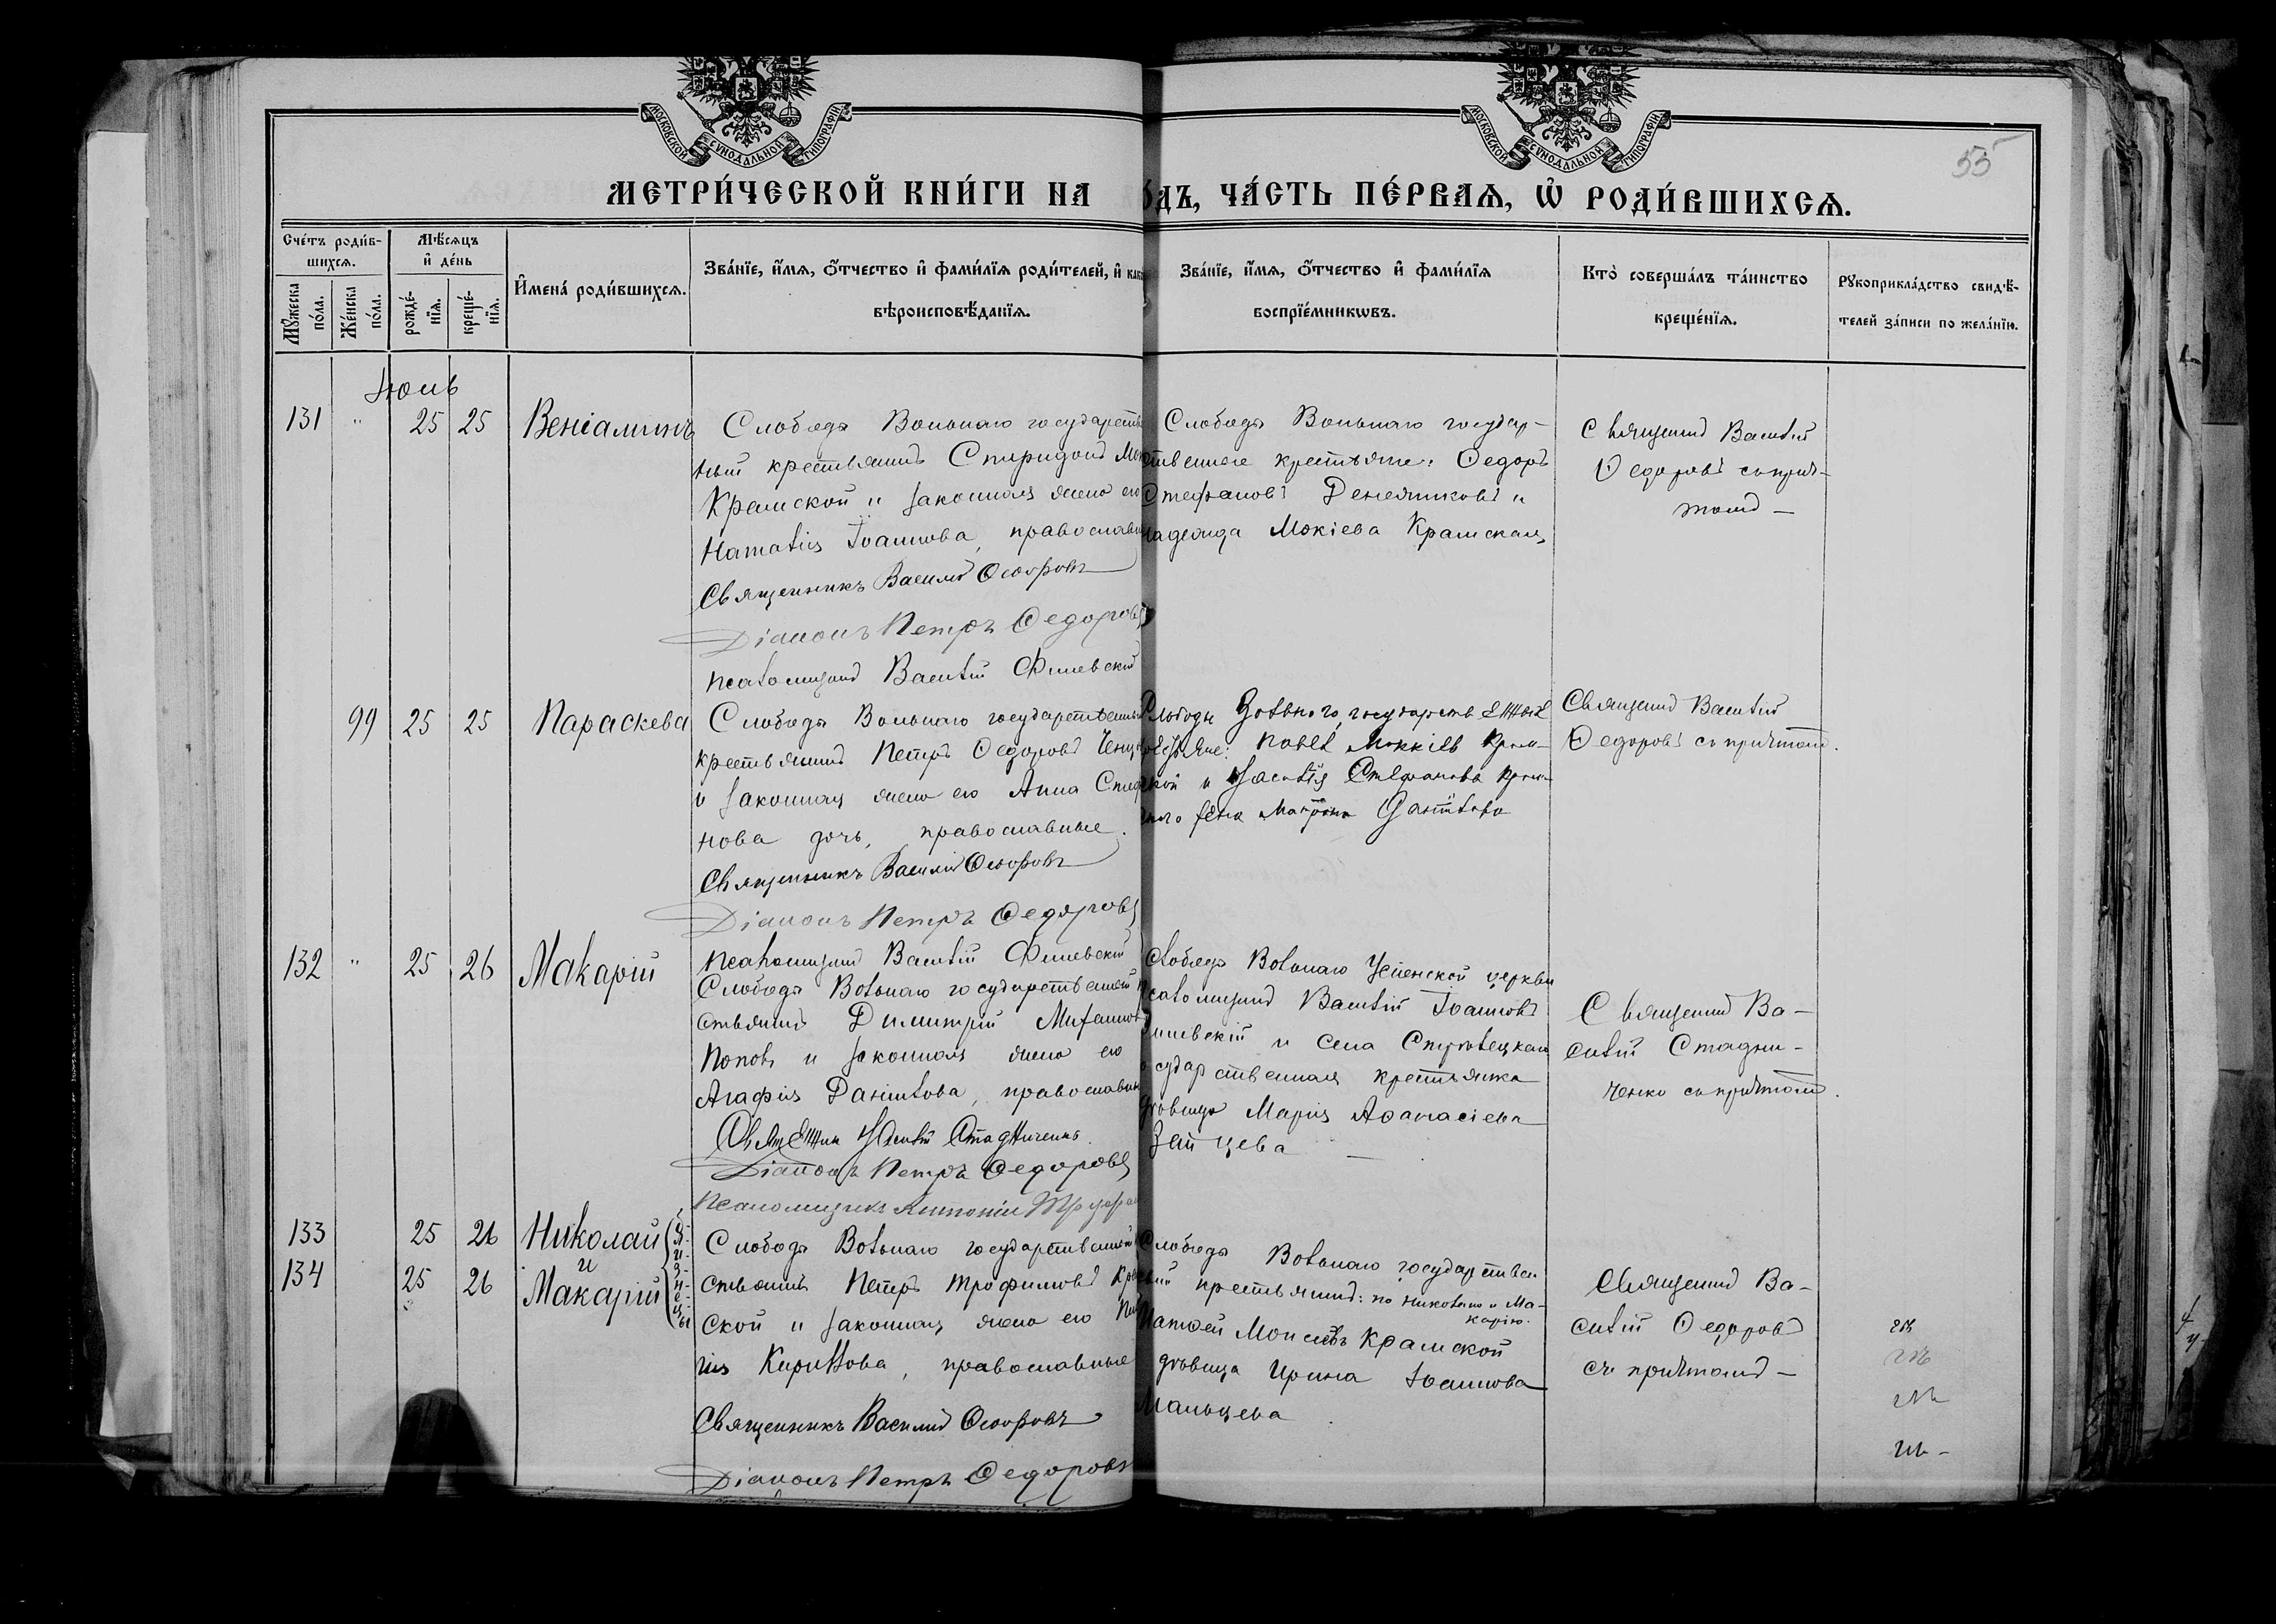 МОСКОВСКОЙ СѴНОДАЛЬНОЙ ТИПОГРАФІИ
МОСКОВСКОЙ СѴНОДАЛЬНОЙ ТИПОГРАФІИ
55
МЕТРИ́ЧЕСКОЙ КНИ́ГИ НА
О́ДЪ, ЧА́СТЬ ПЕ́РВАѦ, Ѡ҆ РОДИ́ВШИХСѦ.
Сче́тъ роди́в-
шихсѧ.
Мꙋ́жеска по́ла.
Же́нска по́ла.
Мѣ́сѧцъ
и҆ де́нь
рожде́-
нїѧ.
креще́-
нїѧ.
И҆мена́ роди́вшихсѧ.
Зва́нїе, и҆́мѧ, ѻ҆́тчество и҆ фами́лїѧ роди́телей, и҆
вѣроисповѣ́данїѧ.
Зва́нїе, и҆́мѧ, ѻ҆́тчество и҆ фами́лїѧ
воспрїе́мникѡвъ.
Кто̀ соверша́лъ та́инство
креще́нїѧ.
Рꙋкоприкла́дство свидѣ́-
телей за́писи по жела́нїю.
Іюль
131 " 25 25 Веніаминъ
Слободы Вольнаго государствен
ный крестьянинъ Спиридонъ
Крамской и законная жена его
Наталія Іоаннова, православные
Священникъ Василій Ѳеодоровъ
Діаконъ Петръ Ѳедоровъ
Псаломщикъ Василій Финевскій
Слободы Вольнаго государ-
ственные крестьяне: Ѳедоръ
Стефановъ и
Надежда Мокіева Крамская
Священникъ Василій
Ѳедоровъ съ прич-
томъ —
99 25 25 Параскева
Слободы Вольнаго государственный
крестьянинъ Петръ Ѳедоровъ
и законная жена его Анна Стефа
нова дочь, православные.
Священникъ Василій Ѳеодоровъ
Діаконъ Петръ Ѳедоровъ
Псаломщикъ Василій Финевскій
Слободы Вольного государственные
крестьяне: Павелъ Мокиевъ Крам-
ской и Стефанова Крам-
жена Матрона
Священникъ Василій
Ѳедоровъ съ причтомъ.
132 " 25 26 Макарій
Слободы Вольнаго государственный кре
стьянинъ Димитрій Михаиловъ
Поповъ и законная жена его
Агафія Даніилова, православные
Священникъ Василій Стадниченко.
Діаконъ Петръ Ѳедоровъ
Псаломщикъ Антоній
Слободы Вольнаго Успенской церкви
псаломщикъ Василій Іоанновъ
Финевскій и села
государственная крестьянка
дѣвица Марія Аѳанасіева
Зайцева —
Священникъ Ва-
силій Стадни-
ченко съ причтомъ.
133 25 26 Николай
и
134 25 26 Макарій
близнецы
Слободы Вольнаго государственный кре
стьянинъ Петръ Трофимовъ Крам
ской и законная жена его
Кириллова, православные
Священникъ Василій Ѳеодоровъ
Діаконъ Петръ Ѳедоровъ
Слободы Вольнаго государствен
ный крестьянинъ: по Николаю и Ма-
карію.
Матѳей Моисеевъ Крамской
дѣвица Ирина Іоаннова
Мальцева.
Священникъ Ва-
силій Ѳедоровъ
съ причтомъ —